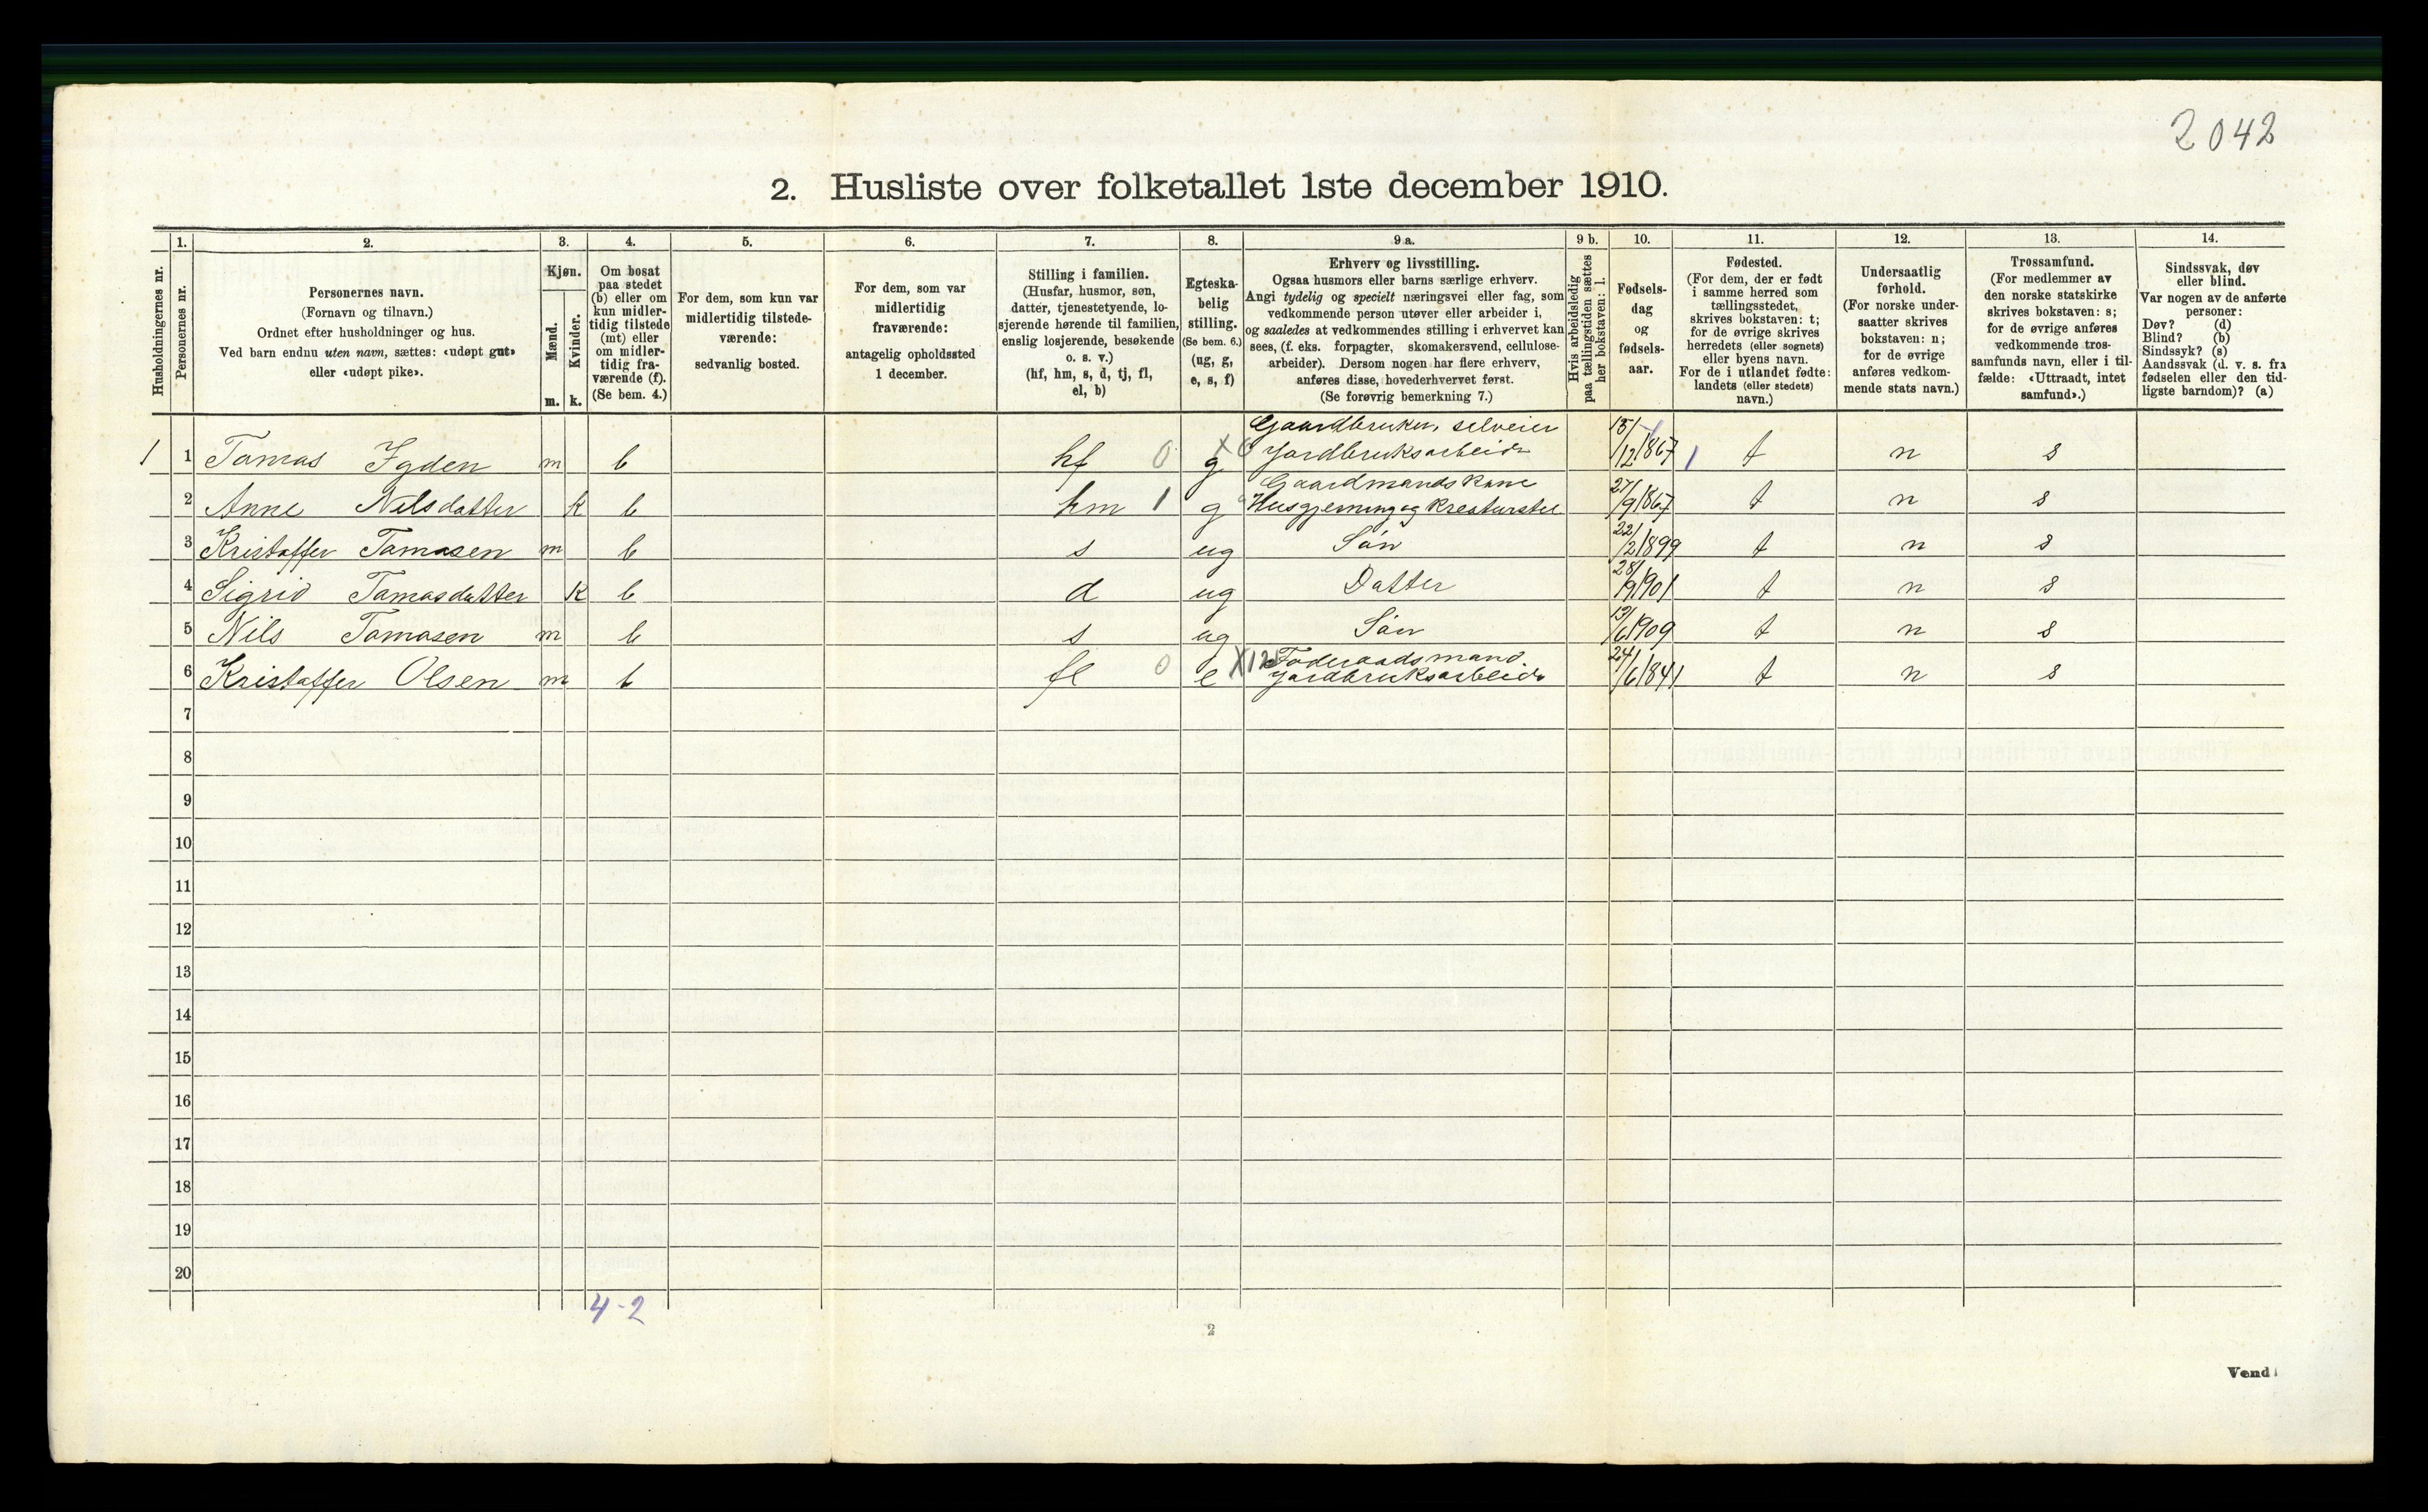 2042
2. Husliste over folketallet 1ste december 1910.
Husholdningernes nr.
1.
Personernes nr.
2.
Personernes navn.
(Fornavn og tilnavn.)
Ordnet efter husholdninger og hus.
Ved barn endnu uten navn, sættes: «udøpt gut»
eller «udøpt pike».
3.
Kjøn.
Mænd.
Kvinder.
m. k.
4.
Om bosat
paa stedet
(b) eller om
kun midler-
tidig tilstede
(mt) eller
om midler-
tidig fra-
værende (f).
(Se bem. 4.)
5.
For dem, som kun var
midlertidig tilstede-
værende:
sedvanlig bosted.
6.
For dem, som var
midlertidig
fraværende:
antagelig opholdssted
1 december.
7.
Stilling i familien.
(Husfar, husmor, søn,
datter, tjenestetyende, lo-
sjerende hørende til familien,
enslig losjerende, besøkende
o. s. v.)
(hf, hm, s, d, tj, fl,
el, b)
8.
Egteska-
belig
stilling.
(Se bem. 6.)
(ug, g,
e, s, f)
9 a.
Erhverv og livsstilling.
Ogsaa husmors eller barns særlige erhverv.
Angi tydelig og specielt næringsvei eller fag, som
vedkommende person utøver eller arbeider i,
og saaledes at vedkommendes stilling i erhvervet kan
sees, (f. eks. forpagter, skomakersvend, cellulose-
arbeider). Dersom nogen har flere erhverv,
anføres disse, hovederhvervet først.
(Se forøvrig bemerkning 7.)
9 b.
Hvis arbeidsledig
paa tællingstiden sættes
her bokstaven: l.
10.
Fødsels-
dag
og
fødsels-
aar.
11.
Fødested.
(For dem, der er født
i samme herred som
tællingsstedet,
skrives bokstaven: t;
for de øvrige skrives
herredets (eller sognets)
eller byens navn.
For de i utlandet fødte:
landets (eller stedets)
navn.)
12.
Undersaatlig
forhold.
(For norske under-
saatter skrives
bokstaven: n;
for de øvrige
anføres vedkom-
mende stats navn.)
13.
Trossamfund.
(For medlemmer av
den norske statskirke
skrives bokstaven: s;
for de øvrige anføres
vedkommende tros-
samfunds navn, eller i til-
fælde: «Uttraadt, intet
samfund».)
14.
Sindssvak, døv
eller blind.
Var nogen av de anførte
personer:
Døv? (d)
Blind? (b)
Sindssyk? (s)
Aandssvak (d. v. s. fra
fødselen eller den tid-
ligste barndom)? (a)
1 1 Tomas Igden m b hf 0 g Gaardbruker, selveier Jordbruksarbeide 15/12 1867 t n s
2 Anne Nilsdatter k b hm 1 g Gaardmandskone Husgjerning og Kreaturstel 27/9 1867 t n s
3 Kristoffer Tomasen m b s ug Sön 22/2 1899 t n s
4 Sigrid Tomasdatter k b d ug Datter 28/9 1901 t n s
5 Nils Tomasen m b s ug Sön 13/6 1909 t n s
6 Kristoffer Olsen m b fl 0 e Föderaadsmand Jordbruksarbeide 24/6 1841 t n s
7
8
9
10
11
12
13
14
15
16
17
18
19
20
4-2
2
Vend!